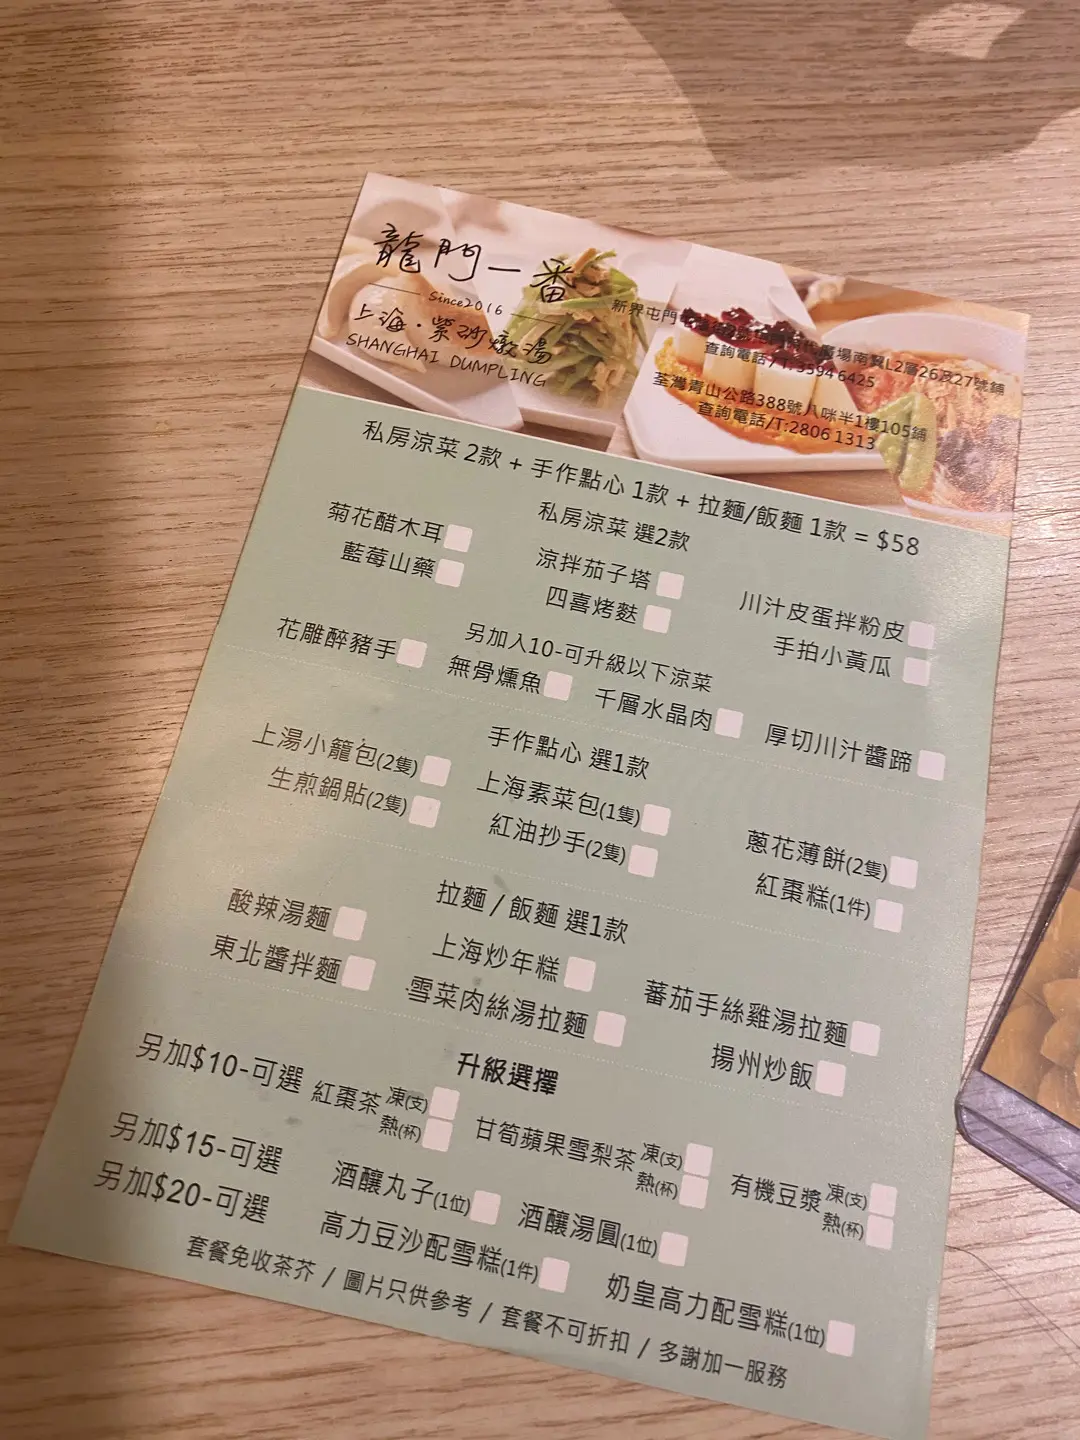 龍門一番
Since2016
上海·紫砂燉湯
SHANGHAI DUMPLING
新界屯門
廣場南翼L2層26及27號舖
查詢電話/T:3594 6425
荃灣青山公路388號八咪半1樓105鋪
查詢電話/T:2806 1313
私房涼菜 2款 + 手作點心 1款 + 拉麵/飯麵 1款 = $58
私房涼菜 選2款
菊花醋木耳 涼拌茄子塔 川汁皮蛋拌粉皮
藍莓山藥 四喜烤麩 手拍小黃瓜
另加入10-可升級以下涼菜
花雕醉豬手 無骨燻魚 千層水晶肉 厚切川汁醬蹄
手作點心 選1款
上湯小籠包(2隻) 上海素菜包(1隻) 蔥花薄餅(2隻)
生煎鍋貼(2隻) 紅油抄手(2隻) 紅棗糕(1件)
拉麵 / 飯麵 選1款
酸辣湯麵 上海炒年糕 蕃茄手絲雞湯拉麵
東北醬拌麵 雪菜肉絲湯拉麵 揚州炒飯
升級選擇
另加$10-可選 紅棗茶 凍(支) 熱(杯) 甘筍蘋果雪梨茶 凍(支) 熱(杯) 有機豆漿 凍(支) 熱(杯)
另加$15-可選 酒釀丸子(1位) 酒釀湯圓(1位)
另加$20-可選 高力豆沙配雪糕(1件) 奶皇高力配雪糕(1位)
套餐免收茶芥 / 圖片只供參考 / 套餐不可折扣 / 多謝加一服務